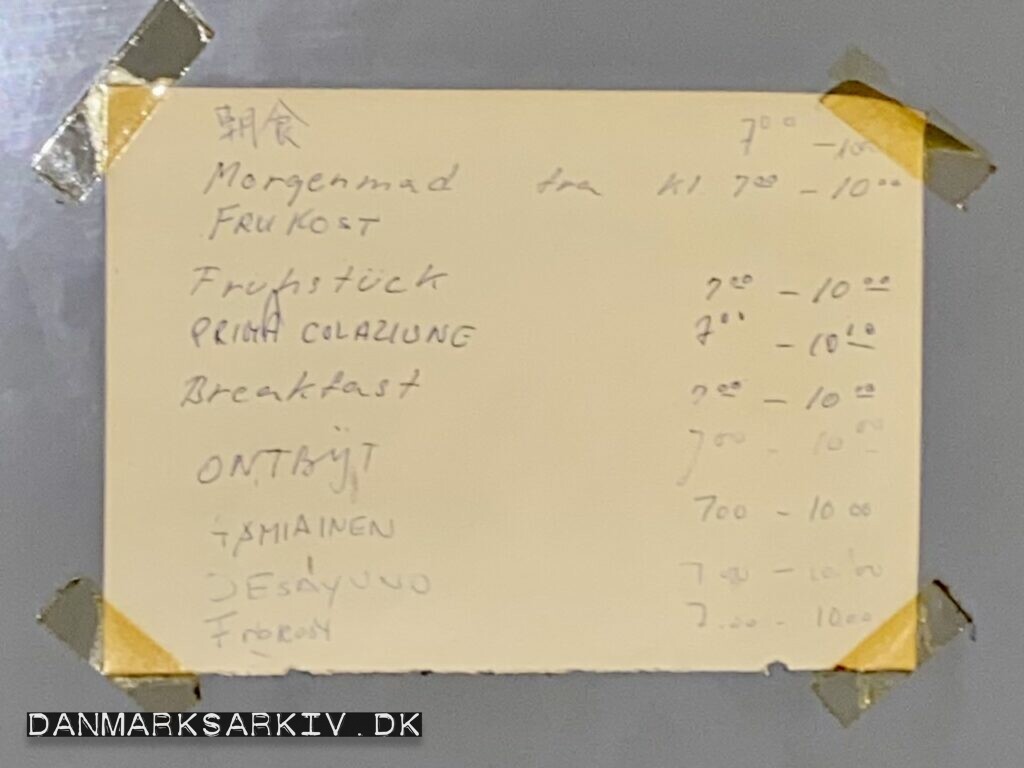 朝食 7⁰⁰ – 10
Morgenmad fra kl 7⁰⁰ – 10⁰⁰
FRUKOST
Fruhstück 7⁰⁰ – 10⁰⁰
PRIMA COLAZIONE 7⁰⁰ – 10¹⁰
Breakfast 7⁰⁰ – 10⁰⁰
ONTBŸT 700 - 10⁰⁰
AAMIAINEN 700 - 10 00
DESAYUNO 7 00 – 10.00
7.00 - 10.00
DANMARKSARKIV.DK